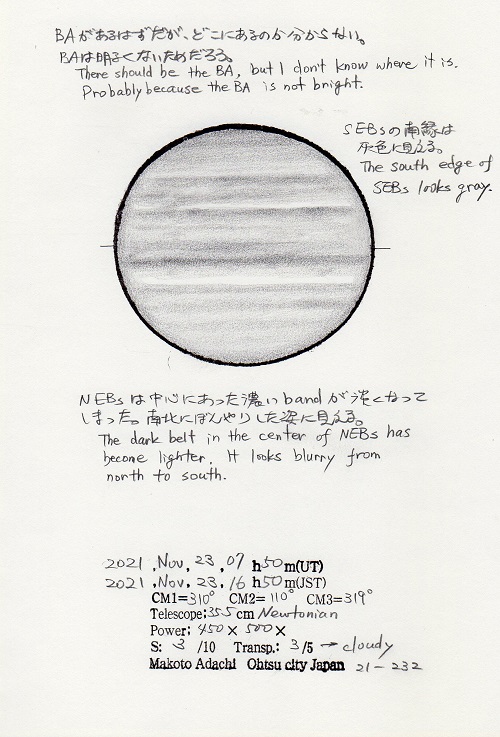 BAがあるはずだが、どこにあるのか分からない。
BAは明るくないためだろう。
There should be the BA, but I don't know where it is.
Probably because the BA is not bright.
SEBsの南縁は
灰色に見える。
The south edge of
SEBs looks gray.
NEBsは中心にあった濃いbandが淡くなって
しまった。南北にぼんやりした姿に見える。
The dark belt in the center of NEBs has
become lighter. It looks blurry from
north to south.
2021 ,Nov, 23, 07 h50m(UT)
2021 ,Nov, 23, 16 h50m(JST)
CM1=310° CM2=110° CM3=319°
Telescope:35.5cm Newtonian
Power: 450× 500×
S: 3 /10 Transp.: 3/5 → cloudy
Makoto Adachi Ohtsu city Japan 21-232